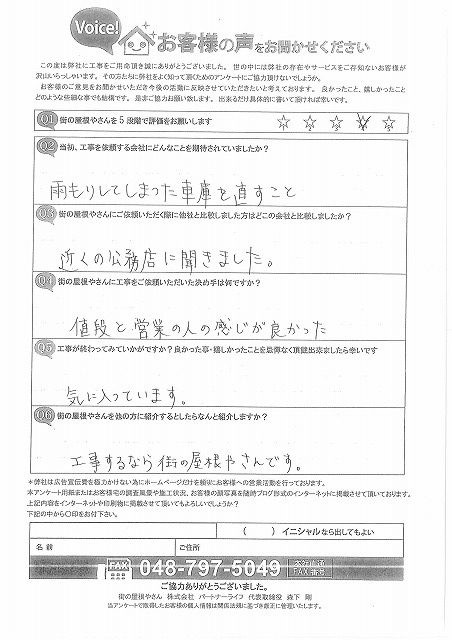 Voice! お客様の声をお聞かせください
この度は弊社に工事をご用命頂き誠にありがとうございました。世の中には弊社の存在やサービスをご存知ないお客様が
沢山いらっしゃいます。その方たちに弊社をよく知って頂くためのアンケートにご協力頂けないでしょうか。
お客様のご意見をお聞かせいただき今後の活動に反映させていただきたいと考えております。良かったこと、嬉しかったこと
どのような些細な事でも結構です。是非ご協力お願い致します。出来るだけ具体的に書いて頂ければ幸いです。
Q1 街の屋根やさんを5段階で評価をお願いします ☆ ☆ ☆ ☆ ☆
Q2 当初、工事を依頼する会社にどんなことを期待されていましたか?
雨もりしてしまった車庫を直すこと
Q3 街の屋根やさんにご依頼いただく際に他社と比較しました方はどこの会社と比較しましたか?
近くの公務店に聞きました。
Q4 街の屋根やさんに工事をご依頼いただいた決め手は何ですか?
値段と営業の人の感じが良かった
Q5 工事が終わってみていかがですか?良かった事・嬉しかったことを忌憚なく頂戴出来ましたら幸いです
気に入っています。
Q6 街の屋根やさんを他の方に紹介するとしたらなんと紹介しますか?
工事するなら街の屋根やさんです。
*弊社は広告宣伝費を極力かけない為にホームページだけを頼りにお客様への営業活動を行っております。
本アンケート用紙またはお客様宅の調査風景や施工状況、お客様の顔写真を随時ブログ形式のインターネットに掲載させて頂いております。
上記内容をインターネットや印刷物に掲載させて頂いてもよろしいでしょうか?
下記の中から〇印をお付下さい。
( ) イニシャルなら出してもよい
名前 ご住所
FAX 048-797-5049 FAX番号
ご協力ありがとうございました。
街の屋根やさん 株式会社 パートナーライフ 代表取締役 森下 剛
当アンケートで取得したお客様の個人情報は関係法規に基づき厳正に管理いたします。